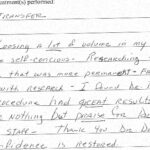 atment(s) performed:
TRANSFER
oosing a lot of volume in my
e self-concious. Researching
that was more permanent - Fa
with research - I found he i
rocedure had great results
e nothing but praise for De
staff - Thank you Dr De
fidence is restored